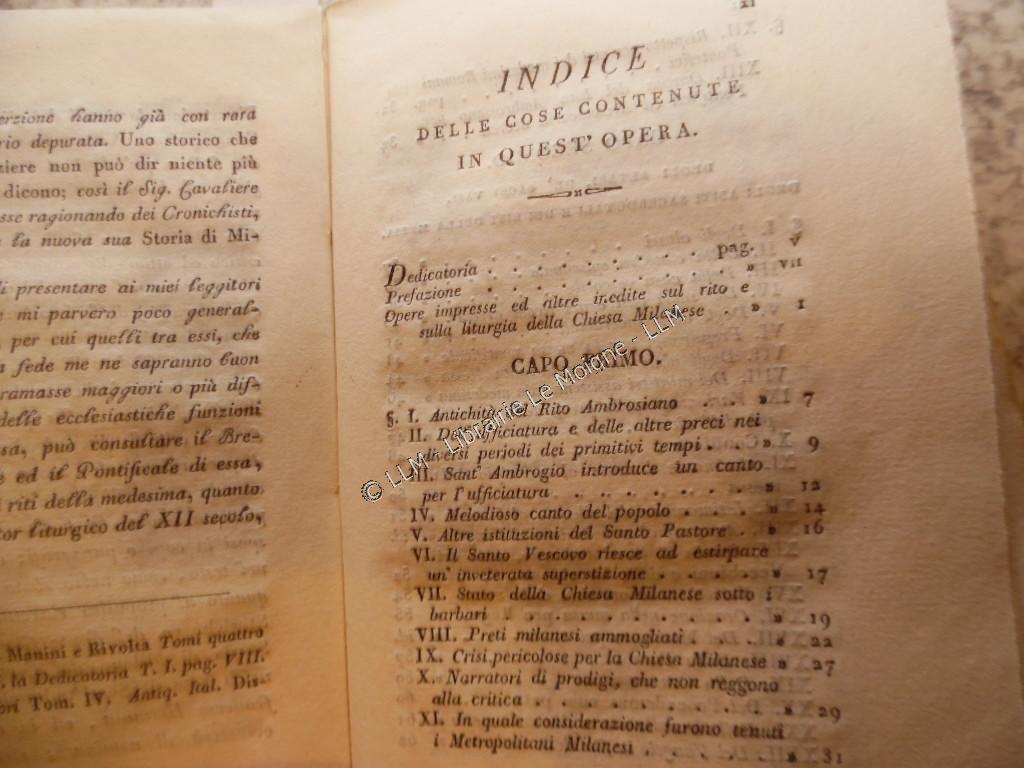 erzione hanno già con rara
rio depurata. Uno storico che
ziere non può dir niente più
dicono; così il Sig. Cavaliere
sse ragionando dei Cronichisti,
la nuova sua Storia di Mi-
di presentare ai miei leggitori
e mi parvero poco general-
, per cui quelli tra essi, che
fede me ne sapranno buon
ramasse maggiori o più dif-
delle ecclesiastiche funzioni
sa, può consultare il Bre-
e ed il Pontificale di essa,
riti della medesima, quanto
tor liturgico del XII secolo,
Manini e Rivolta Tomi quattro
. la Dedicatoria T. I. pag. VIII.
ori Tom. IV. Antiq. Ital. Dis-
INDICE
DELLE COSE CONTENUTE
IN QUEST' OPERA.
Dedicatoria . . . . . . . . . . pag. V
Prefazione . . . . . . . . . . » VII
Opere impresse ed altre inedite sul rito e
sulla liturgia della Chiesa Milanese . » 1
CAPO PRIMO.
§. I. Antichità del Rito Ambrosiano . . » 7
II. Dell'ufficiatura e delle altre preci nei
diversi periodi dei primitivi tempi . . » 9
III. Sant' Ambrogio introduce un canto
per l'ufficiatura . . . . . . . . » 12
IV. Melodioso canto del popolo . . . . » 14
V. Altre istituzioni del Santo Pastore . » 16
VI. Il Santo Vescovo riesce ad estirpare
un' inveterata superstizione . . . . . » 17
VII. Stato della Chiesa Milanese sotto i
barbari . . . . . . . . . . . . » 19
VIII. Preti milanesi ammogliati . . . . » 22
IX. Crisi pericolose per la Chiesa Milanese » 27
X. Narratori di prodigi, che non reggono
alla critica . . . . . . . . . . » 29
XI. In quale considerazione furono tenuti
i Metropolitani Milanesi . . . . . » 31
© LLM - Librairie Le Moigne - LLM